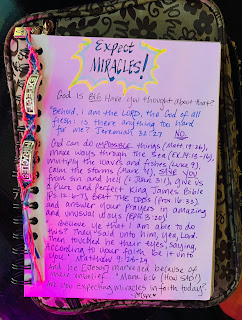 Expect
MIRACLES!
God is BIG. Have you thought about that?
"Behold, I am the LORD, the God of all
flesh: is there anything too hard
for me? Jeremiah 32:27 NO.
God can do IMPOSSIBLE things (Matt. 19:26),
make ways through the Sea (EX.14:13-16),
multiply the loaves and fishes (Luke 9),
calm the storms (Mark 4), SAVE YOU
from sin and hell (1 John 3:1), give us
a pure and perfect King James Bible
(PS 12:6-7), BEAT THE ODDS (Prov 16:33),
and answer your prayers in amazing
and unusual ways (EPH 3:20)!
"Believe ye that I am able to do
this? They said unto him, Yea, Lord.
Then touched he their eyes, saying,
According to your faith be it unto
you." Matthew 9:28-29
And he marveled because of
their unbelief." Mark 6:6 (How SAD!)
Are you Expecting miracles in faith today?